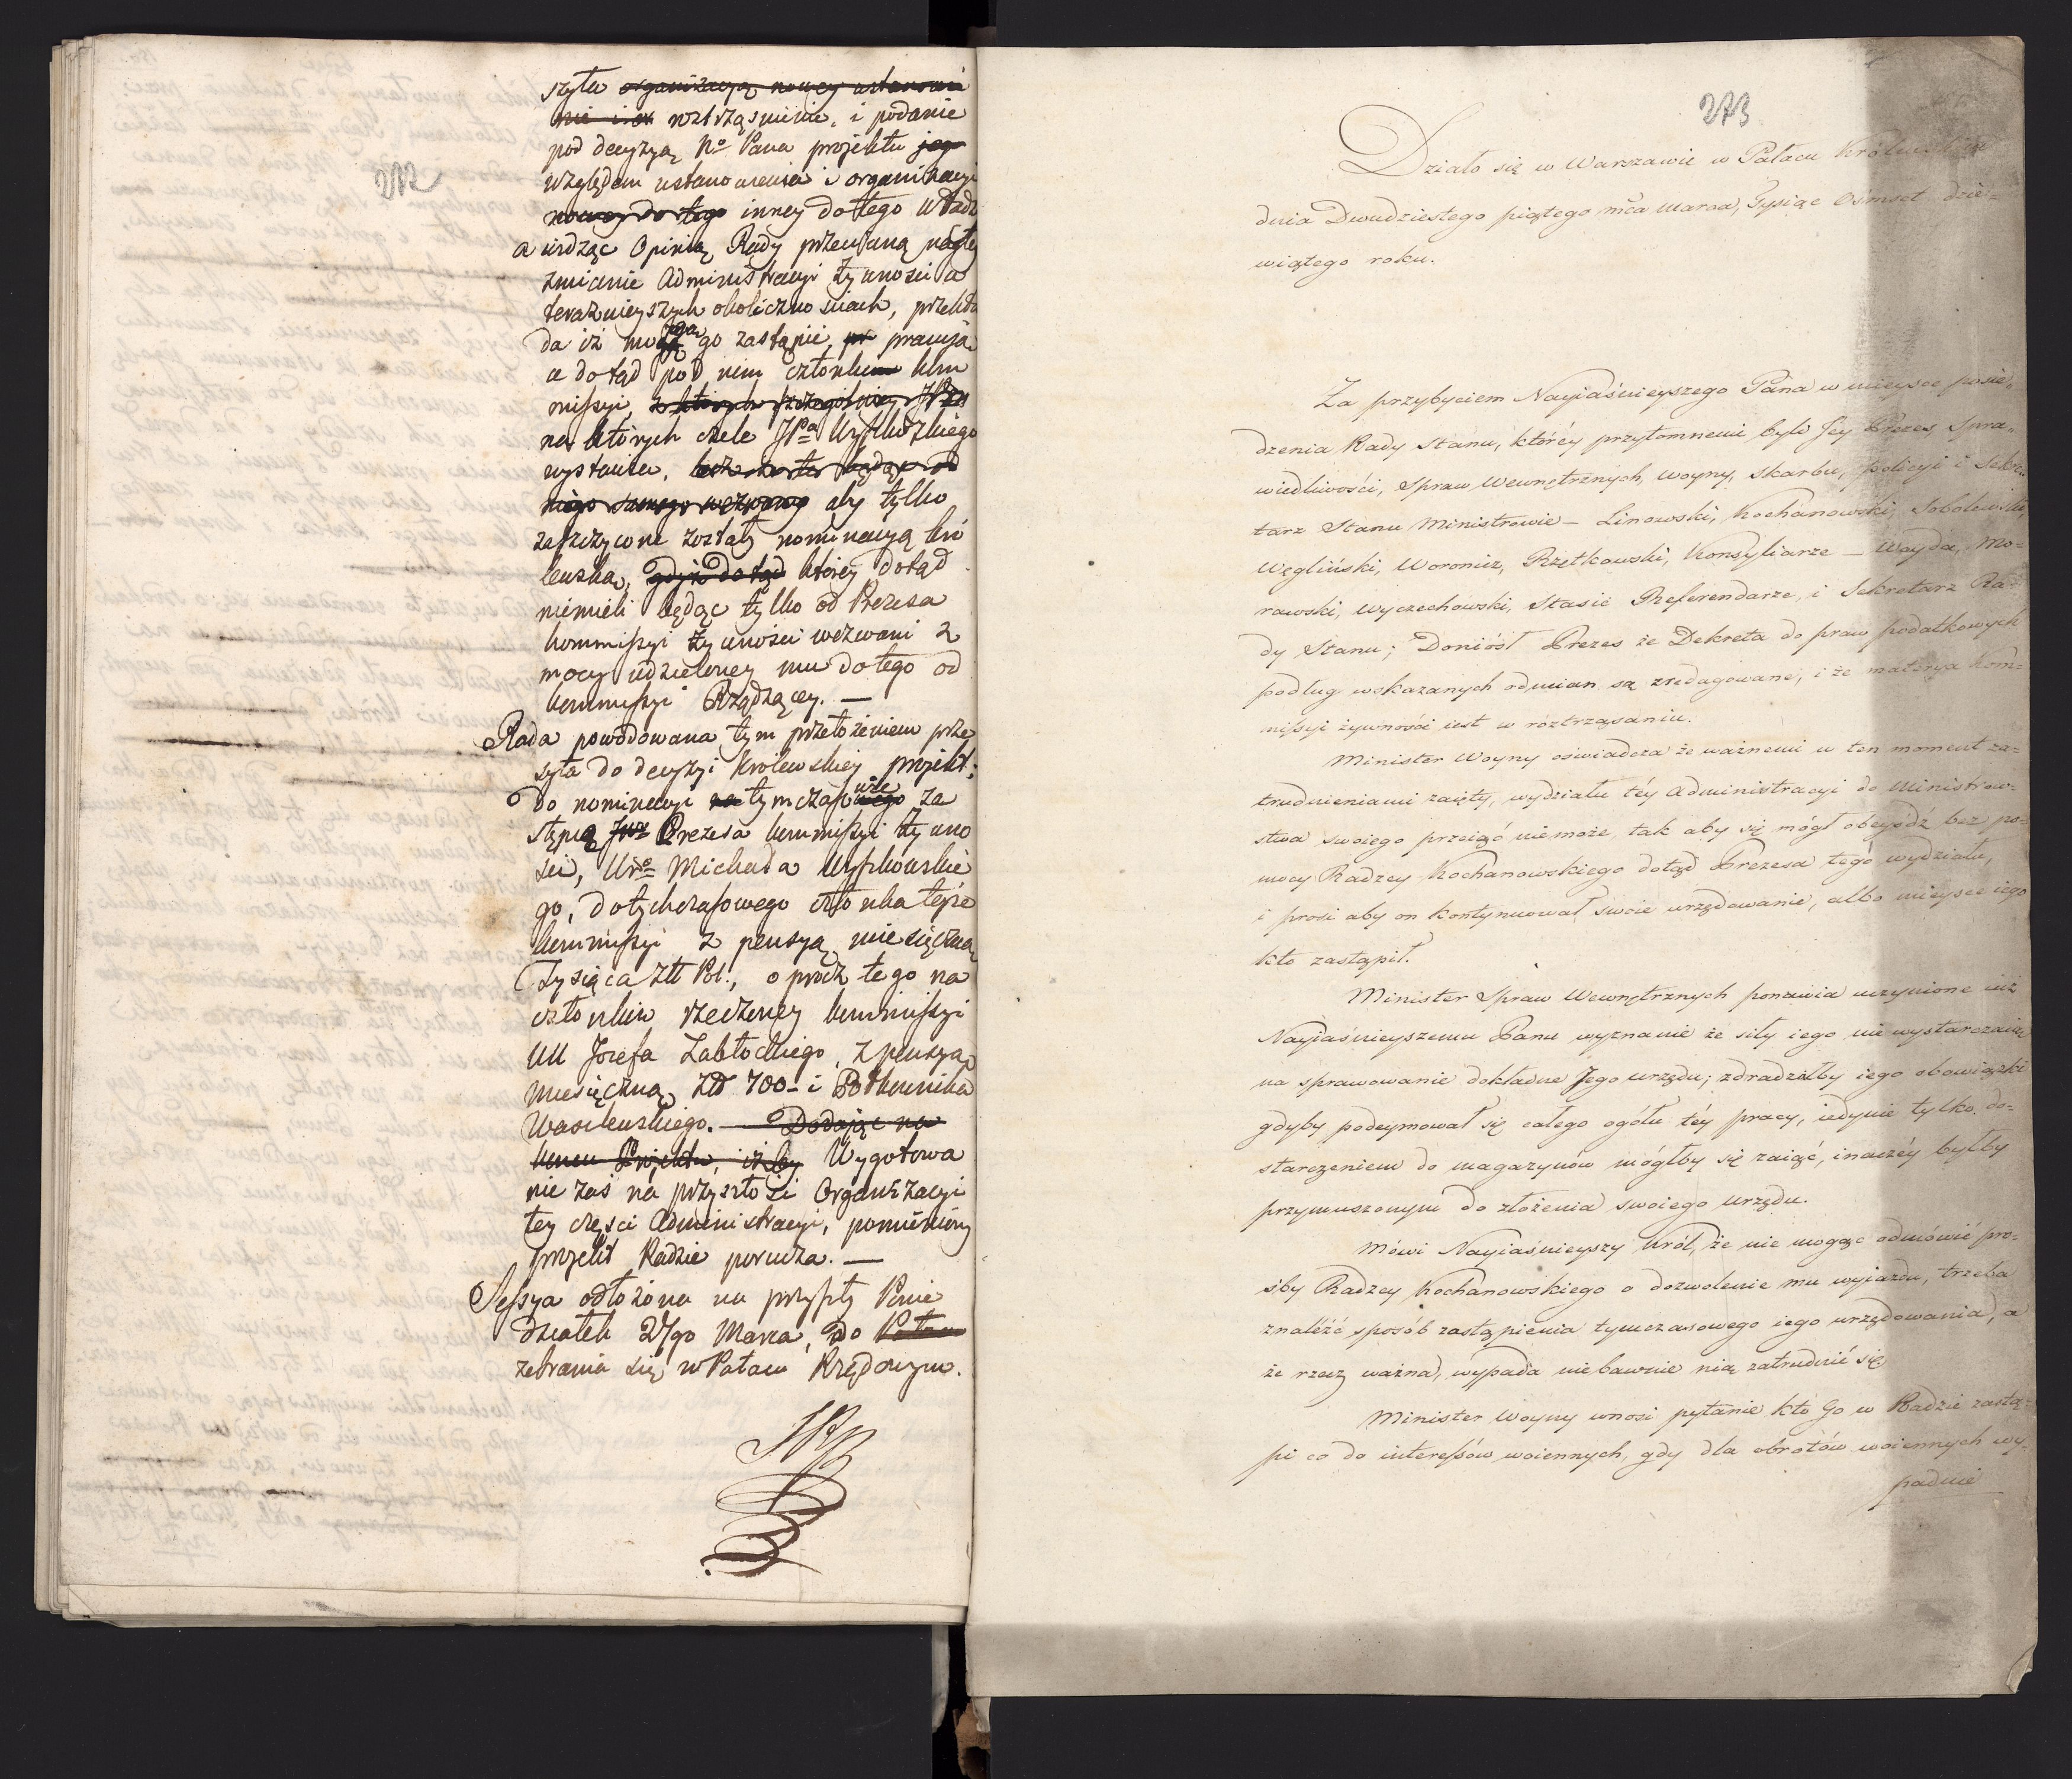 272
szyła organizacyą nowey ustanowi
nie i roztrząśnienie, i podanie
pod decyzyą No Pana projektu jego
względem ustanowienia i organizacyi
nowey do tego inney do tego Wład
a widząc Opinią Rady przeciwną nagłey
zmianie Administracyi żywności w
teraźnieyszych okolicznościach, przekła
da iż mogą go zastąpić, pr pracują
ce dotąd pod nim członkowie kom
missyi, z których szczególniey JPa
na których czele JPa Wyszkowskiego
wystawia, będąc od
niego samego wezwany aby tylko
zaszczyceni zostali nominacyą kró
lewską, gdyż dotąd którey dotąd
niemieli będąc tylko od Prezesa
kommissyi żywności wezwani z
mocy udzieloney mu do tego od
kommissyi Rządzącey. —
Rada powodowana tym przełożeniem prze
syła do decyzyi Królewskiey projekt
do nominacyi na tymczasowie za
stępcą Prezesa kommissyi żywno
ści, Uro Michała Wyszkowskie
go, dotychczasowego członka teyże
kommissyi z pensyą miesięczną
Tysiąca Złł Pol., oprócz tego na
członków rzeczoney kommissyi
UU Jozefa Zabłockiego, z pensyą
miesięczną Złł 700 – i Półkownika
Wasilewskiego. — Dodając na
końcu Projektu, iżby Wygotowa
nie zaś na przyszłość Organizacyi
tey części Administracyi, pomieniony
projekt Radzie porucza. —
Sessya odłożona na przyszły Ponie
działek 27go Marca, do Pałacu
zebrania się w Pałacu Rządowym.
273
Działo się w Warszawie w Pałacu Królewskim
dnia Dwudziestego piątego mca Marca, Tysiąc Ośmset dzie-
wiątego roku.
Za przybyciem Nayiaśnieyszego Pana w mieysce posie-
dzenia Rady Stanu, któréy przytomnemi byli Jéy Prezes, Spra-
wiedliwości, Spraw Wewnętrznych, Woyny, Skarbu, Policyi i Sekre-
tarz Stanu Ministrowie – Linowski, Kochanowski, Sobolewski,
Węgliński, Woronicz, Rzętkowski, Konsyliarze – Wayda, Mo-
rawski, Wyczechowski, Stasic Referendarze, i Sekretarz Ra-
dy Stanu; Doniósł Prezes że Dekreta do praw podatkowych
podług wskazanych odmian są zredagowane, i że materya Kom-
missyi żywności iest w roztrząsaniu.
Minister Woyny oświadcza że ważnemi w ten moment za-
trudnieniami zaięty, wydziału téy Administracyi do Ministrow-
stwa swoiego przeiąć nie może, tak aby się mógł obeyśdź bez po-
mocy Radzcy Kochanowskiego dotąd Prezesa tego wydziału,
i prosi aby on kontynuował swoie urzędowanie, albo mieysce iego
kto zastąpił.
Minister Spraw Wewnętrznych ponawia uczynione iuż
Nayiaśnieyszemu Panu wyznanie że siły iego nie wystarczaią
na sprawowanie dokładne Jego urzędu; zdradziłby iego obowiązki
gdyby podeymował się całego ogółu téy pracy, iedynie tylko do-
starczeniem do magazynów mógłby się zaiąć, inaczéy byłby
przymuszonym do złożenia swoiego urzędu.
Mówi Nayiaśnieyszy Król, że nie mogąc odmówić pro-
śby Radzcy Kochanowskiego o dozwolenie mu wyjazdu, trzeba
znaléźć sposób zastąpienia tymczasowego iego urzędowania, a
że rzecz ważna, wypada niebawnie nią zatrudnić się
Minister Woyny wnosi pytanie kto Go w Radzie zastą-
pi co do interessów woiennych, gdy dla obrotów woiennych wy-
padnie